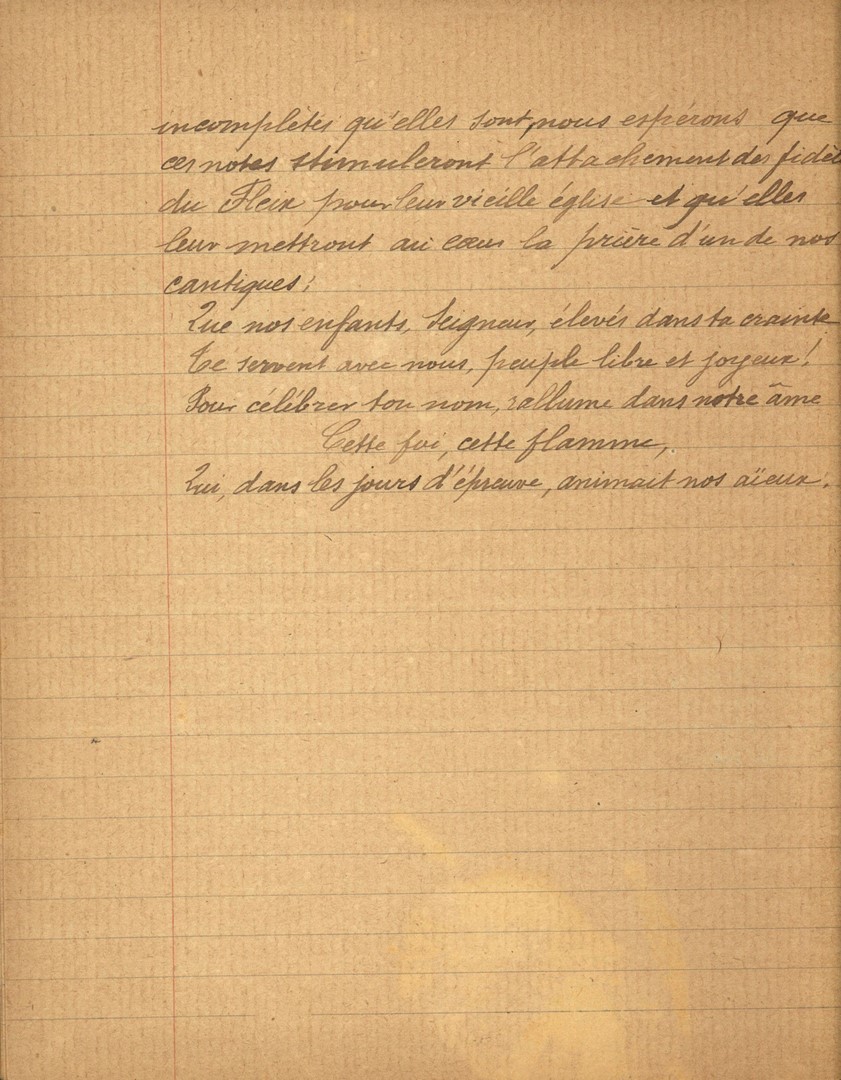 incomplètes qu'elles sont, nous espérons que
ces notes stimuleront l'attachement des fidèl
du Fleix pour leur vieille église et qu'elles
leur mettront au cœur la prière d'un de nos
cantiques:
Que nos enfants, Seigneur, élevés dans ta crainte
Te servent avec nous, peuple libre et joyeux!
Pour célébrer ton nom, rallume dans notre âme
Cette foi, cette flamme,
Qui, dans les jours d'épreuve, animait nos aïeux.